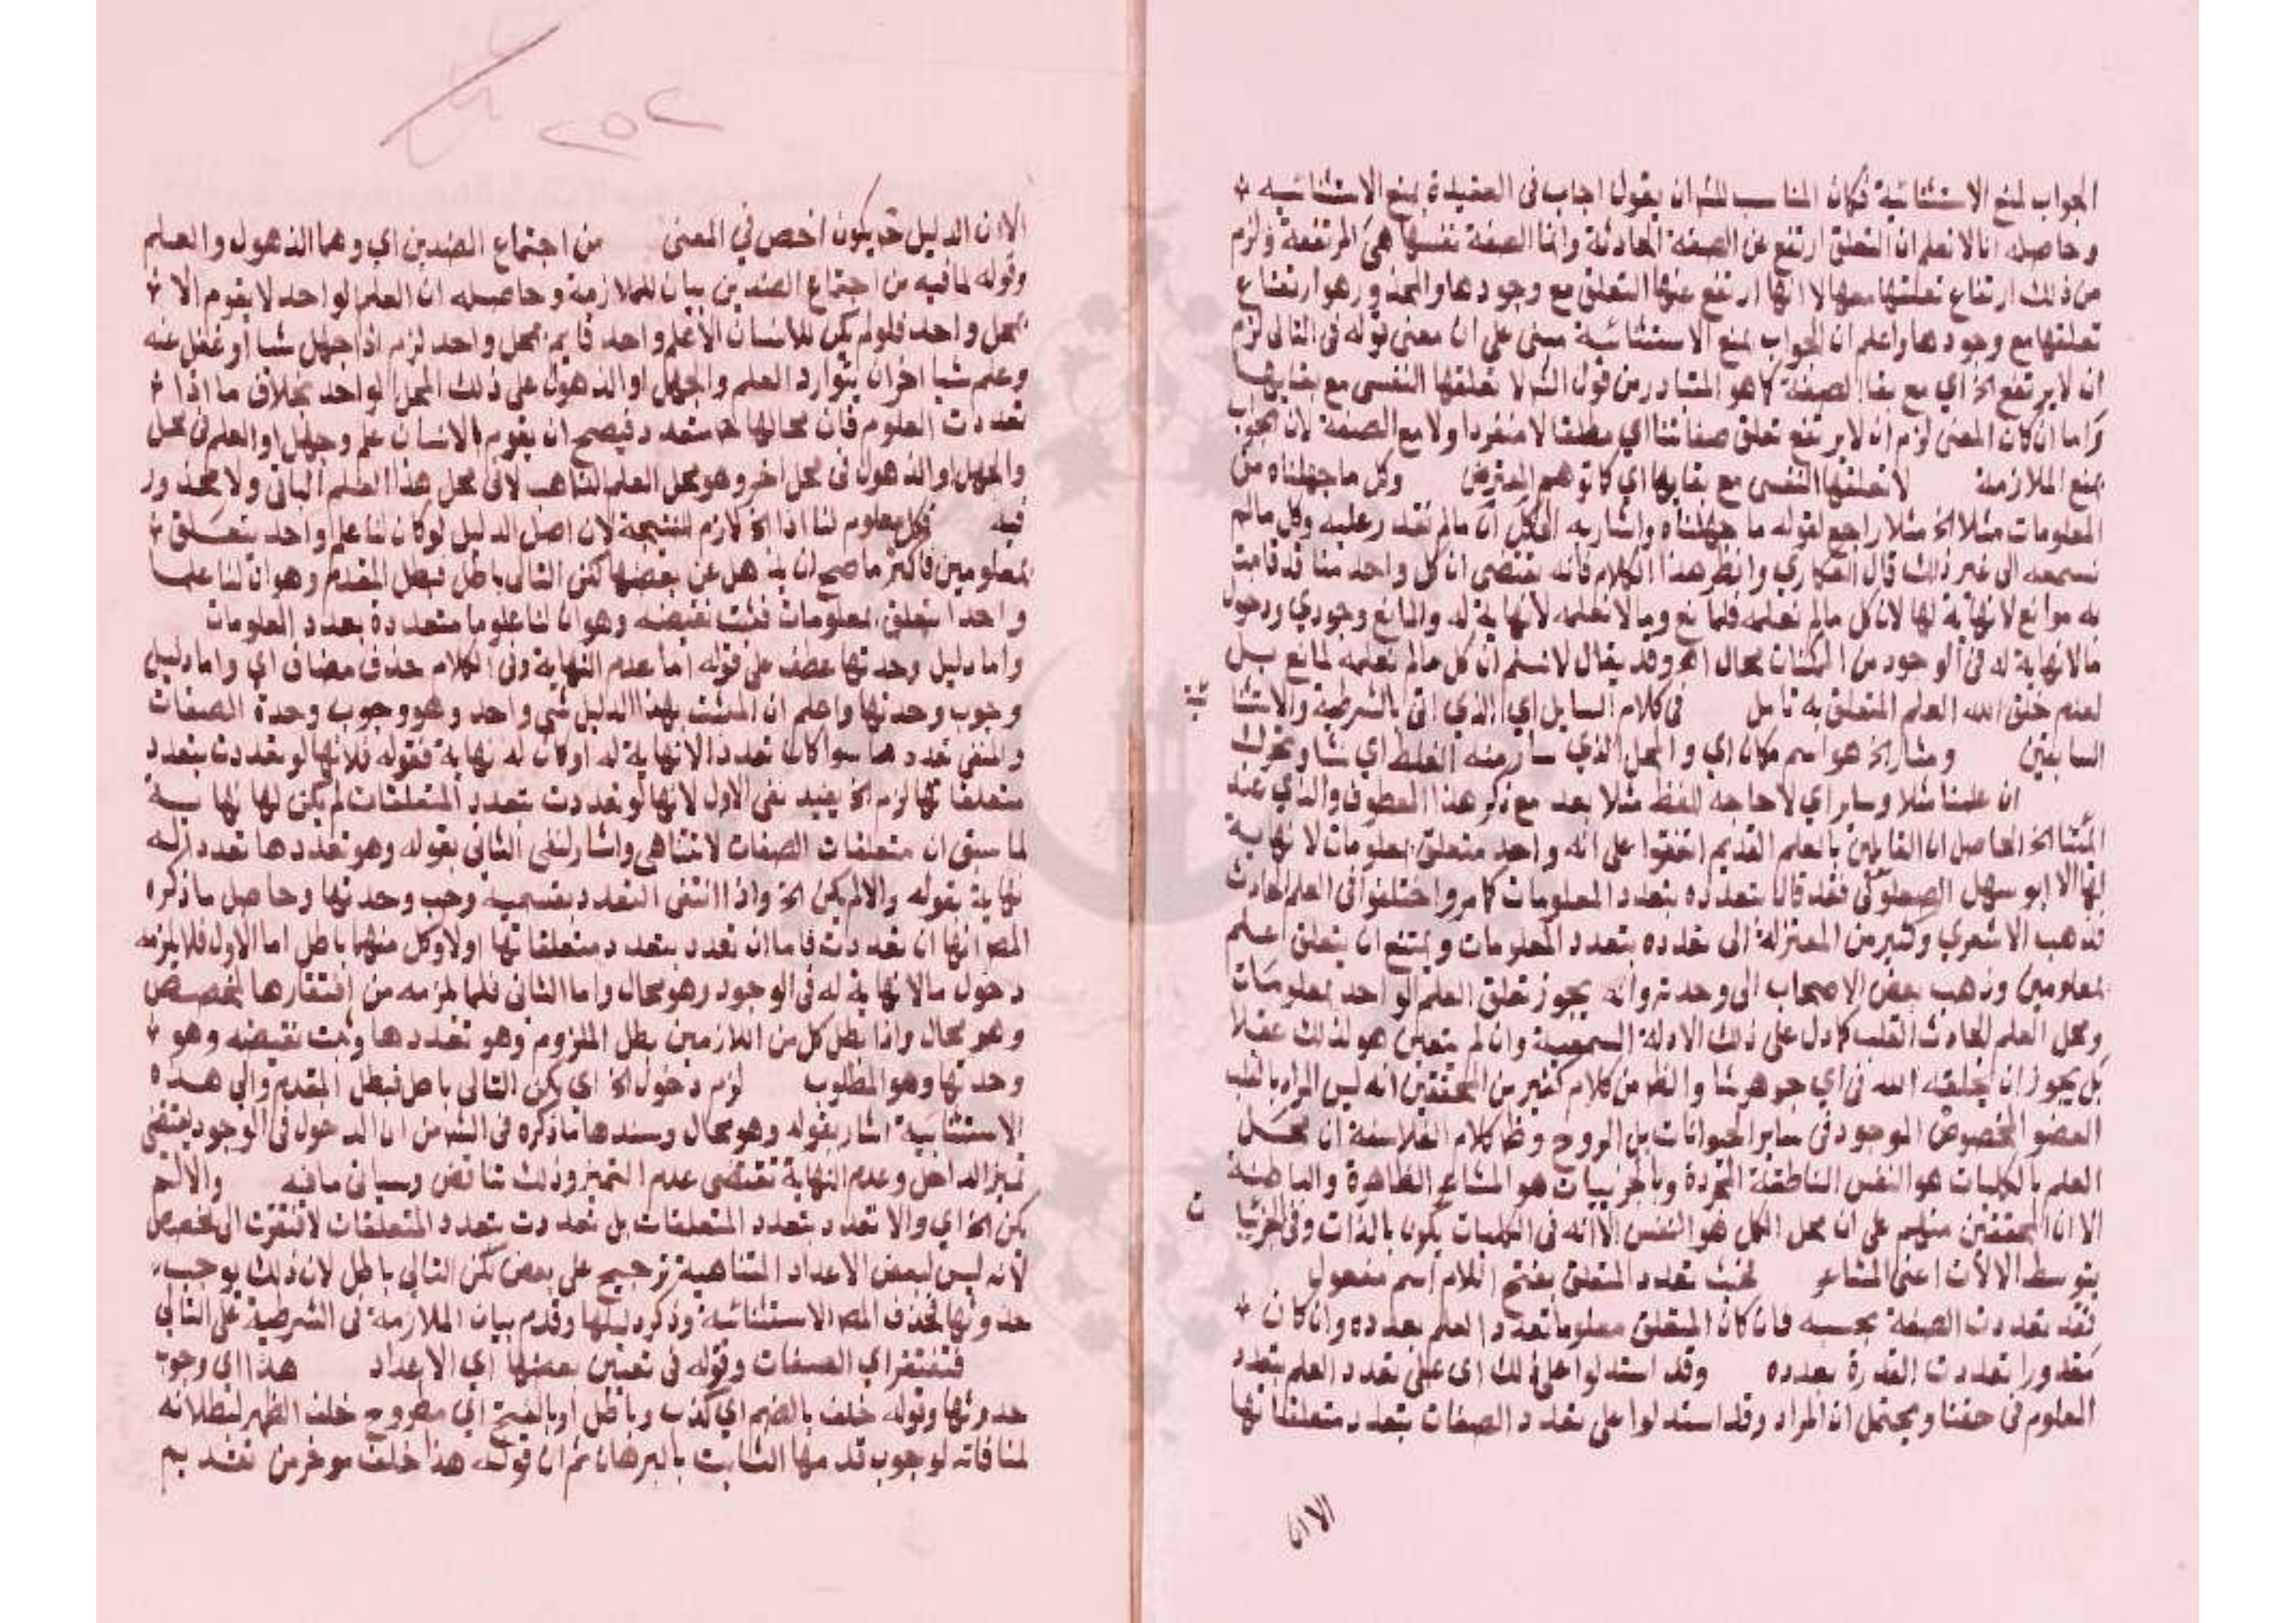 الجواب لمنع الاستثنائية فكان المناسب للشران يقول اجاب في العقيدة بمنع الاستثنائيه
وحاصله انا لا نعلم ان التعلق ارتفع عن الصفة الحادثة وانما الصفة نفسها هي المرتفعة ولزم
من ذلك ارتفاع تعلقها معها لا انها ارتفع عنها التعلق مع وجودها والمحذور هو ارتفاع
تعلقها مع وجودها واعلم ان الجواب بمنع الاستثنائية مبنى على ان معنى قوله في التالى لزم
ان لا يرتفع الخ اي مع بقا الصفة كما هو المتبادر من قول الشر لا تعلقها النفسى مع بقايها
واما ان كان المعنى لزم ان لا يرتفع تعلق صفاتنا اي مطلقا لا منفردا ولا مع الصفة لان الجواب
بمنع الملازمة لا تعلقها النفسى مع بقايها اي كما توهم المعترض وكل ما جهلناه من
المعلومات مثلا الخ مثلا راجع لقوله ما جهلناه واشار به الى كل ان مالم نقدر عليه وكل مالم
نسمعه الى غير ذلك قال العكاري وانظر هذا الكلام فانه يقتضى ان كل واحد منا قد قامت
به موانع لا نهاية لها لان كل مالم نعلمه فلمانع وما لا نعلمه لا نهاية له والمانع وجودي ودخول
مالا نهاية له في الوجود من الممكنات محال اهـ وقد يقال لا نسلم ان كل مالم نعلمه لمانع بل
لعدم خلق الله العلم المتعلق به تامل في كلام السايل اي الذي اتى بالشرطية والاستثنا
ئية
السابقين ومثار الخ هو اسم مكان اي والمحل الذي سار منه الغلط اي نشا وتحرك
ان علمنا مثلا وساير اي لا حاجه للفظ مثلا بعد مع ذكر هذا المعطوف والذي عند
المتنا الخ الحاصل ان القايلين بالعلم القديم اتفقوا على انه واحد متعلق بمعلومات لا نهاية
لها الا ابو سهل الصعلوكي فقد قال بتعدده بتعدد المعلومات كما مر واختلفوا في العلم الحادث
فذهب الاشعري وكثير من المعتزلة الى تعدده بتعدد المعلومات ويمتنع ان يتعلق اعلم
بمعلومين وذهب بعض الاصحاب الى وحدته وانه يجوز تعلق العلم الواحد بمعلومات
ومحل العلم الحادث القلب كما دل على ذلك الادلة السمعية وان لم يتعين هو لذلك عقلا
بل يجوز ان يخلقه الله في اي جوهر شا والظ من كلام كثير من المحققين انه ليس المراد بالقلب
العضو المخصوص الموجود في ساير الحيوانات بل الروح وظ كلام الفلاسفة ان محل
العلم بالكليات هو النفس الناطقة المجردة وبالجزييات هو المشاعر الظاهرة والباطنة
الا ان المحققين منهم على ان محل الكل هو النفس الا انه في الكليات يكون بالذات وفي الجزئيا
ت
بتوسط الالات اعنى المشاعر بحيث تعدد المتعلق بفتح اللام اسم مفعول
فقد تعددت الصفة بحسبه فان كان المتعلق معلوما تعدد العلم بعدده وان كان
مقدورا تعددت القدرة بعدده وقد استدلوا على ذلك اى على تعدد العلم بتعدد
العلوم في حقنا ويحتمل ان المراد وقد استدلوا على تعدد الصفات بتعدد متعلقاتها
الا ان
٢٥٢
الا ان الدليل ح يكون اخص في المعنى من اجتماع الضدين اي وهما الذهول والعلم
وقوله لما فيه من اجتماع الضدين بيان للملازمة وحاصله ان العلم الواحد لا يقوم الا
بمحل واحد فلو لم يكن للانسان الا علم واحد قايم بمحل واحد لزم اذا جهل شيا او غفل عنه
وعلم شيا اخر ان يتوارد العلم والجهل او الذهول على ذلك المحل الواحد بخلاف ما اذا
تعددت العلوم فان محالها ح متعدد فيصح ان يقوم بالانسان علم وجهل او العلم في محل
والجهل او الذهول في محل اخر وهو محل العلم الذاهب لا في محل هذا العلم الباقي ولا محذور
فيه فكل معلوم لنا اذا الخ لازم للنتيجة لان اصل الدليل لو كان لنا علم واحد يتعلق
بمعلومين فاكثر ما صح ان يذهل عن بعضها لكن التالى باطل فبطل المقدم وهو ان لنا علما
واحدا يتعلق بمعلومات فثبت نقيضه وهو ان لنا علوما متعددة بعدد العلومات
واما دليل وحدتها عطف على قوله اما عدم النهاية وفي الكلام حذف مضاف اي واما دليل
وجوب وحدتها واعلم ان المثبت بهذا الدليل شي واحد وهو وجوب وحدة الصفات
والمنفى تعددها سوا كان تعددا لا نهاية له او كان له نهاية فقوله فلانها لو تعددت بتعدد
متعلقاتها لزم الخ يفيد نفى الاول لانها لو تعددت بتعدد المتعلقات لم يكن لها نهاية
لما سبق ان متعلقات الصفات لا تتناهى واشار لنفى الثانى بقوله وهو تعددها تعددا له
نهاية بقوله والا لم يكن الخ واذا انتفى التعدد بقسميه وجب وحدتها وحاصل ما ذكره
المص انها ان تعددت فاما ان تعدد بتعدد متعلقاتها اولا وكل منهما باطل اما الاول فلما يلزمه
دخول مالا نهاية له في الوجود وهو محال واما الثانى فلما يلزمه من افتقارها لمخصص
وهو محال واذا بطل كل من اللازمين بطل الملزوم وهو تعددها وثبت نقيضه وهو
وحدتها وهو المطلوب لزم دخول الخ اي لكن التالى باطل فبطل المقدم والى هذه
الاستثنائية اشار بقوله وهو محال وسندها ما ذكره في الشر من ان الدخول في الوجود يقتضى
تميز الداخل وعدم النهاية تقتضى عدم التميز وذلك تناقض وسياتى ما فيه والا لم
يكن الخ اي والا تعدد بتعدد المتعلقات بل تعددت بتعدد المتعلقات لافتقرت الى مخصص
لانه ليس لبعض الاعداد المتناهية ترجيح على بعض لكن التالى باطل لان ذلك يوجب
حدوثها فحذف المص الاستثنائية وذكر دليلها وقدم بيان الملازمة في الشرطية على التالي
فتفتقر اي الصفات وقوله في تعيين بعضها اي الاعداد هذا اي وجوب
حدوثها وقوله خلف بالضم اي كذب وباطل او بالفتح اي مطروح خلف الظهر لبطلانه
لمنافاته لوجوب قدمها الثابت بالبرهان ثم ان قوله هذا خلف موخر من تقديم